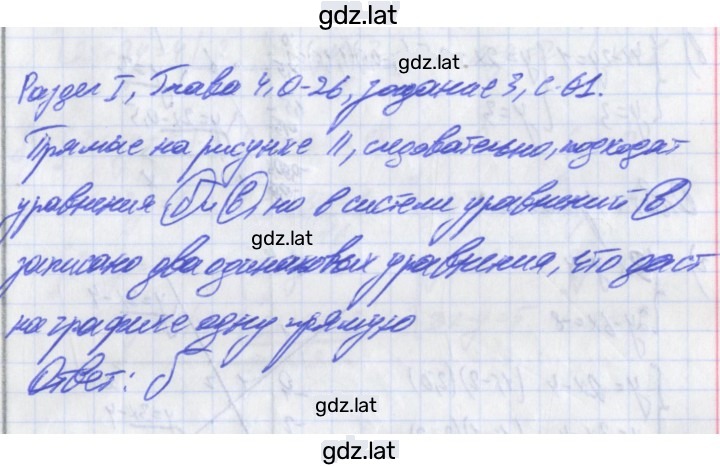 gdz.lat
gdz.lat
Раздел I, Глава 4, О-26, задание 3, с. 61.
Прямые на рисунке ||, следовательно, подходят
уравнения б и в, но в системе уравнений в
gdz.lat
записано два одинаковых уравнения, что даст
на графике одну прямую
Ответ: б
gdz.lat
gdz.lat